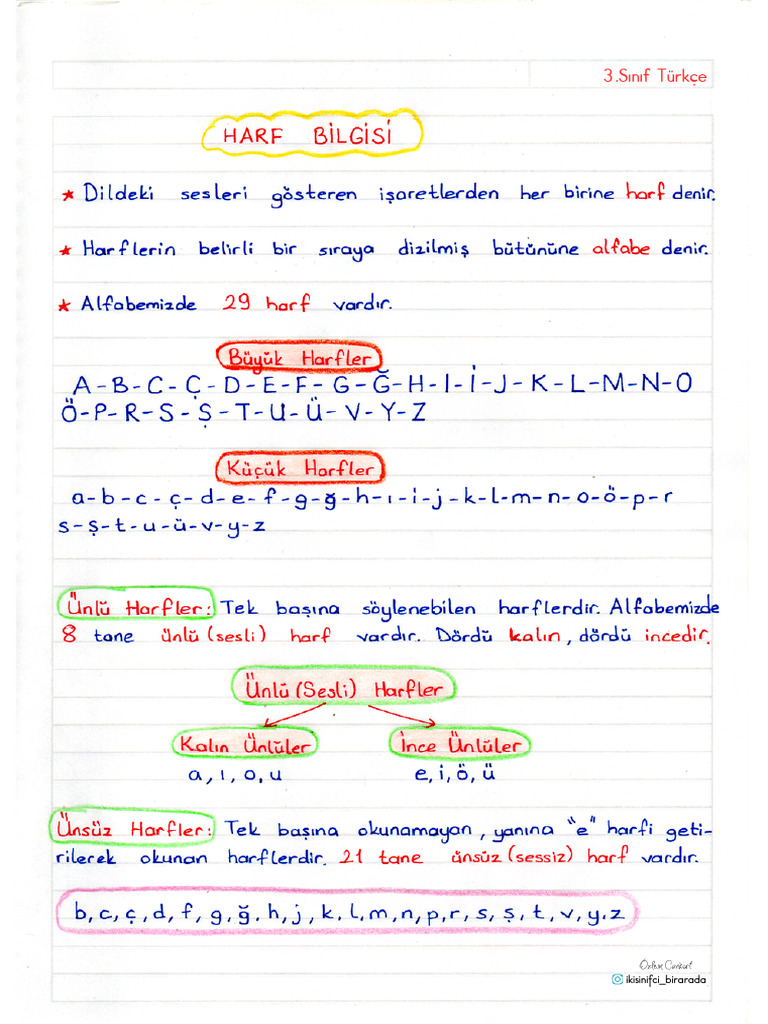 3.Sınıf Türkçe
HARF BİLGİSİ
★ Dildeki sesleri gösteren işaretlerden her birine harf denir.
★ Harflerin belirli bir sıraya dizilmiş bütününe alfabe denir.
★ Alfabemizde 29 harf vardır.
Büyük Harfler
A-B-C-Ç-D-E-F-G-Ğ-H-I-İ-J-K-L-M-N-O
Ö-P-R-S-Ş-T-U-Ü-V-Y-Z
Küçük Harfler
a-b-c-ç-d-e-f-g-ğ-h-ı-i-j-k-l-m-n-o-ö-p-r
s-ş-t-u-ü-v-y-z
Ünlü Harfler: Tek başına söylenebilen harflerdir. Alfabemizde
8 tane ünlü (sesli) harf vardır. Dördü kalın, dördü incedir.
Ünlü (Sesli) Harfler
Kalın Ünlüler İnce Ünlüler
a, ı, o, u e, i, ö, ü
Ünsüz Harfler: Tek başına okunamayan, yanına "e" harfi geti-
rilerek okunan harflerdir. 21 tane ünsüz (sessiz) harf vardır.
b, c, ç, d, f, g, ğ, h, j, k, l, m, n, p, r, s, ş, t, v, y, z
ikisinifci_birarada